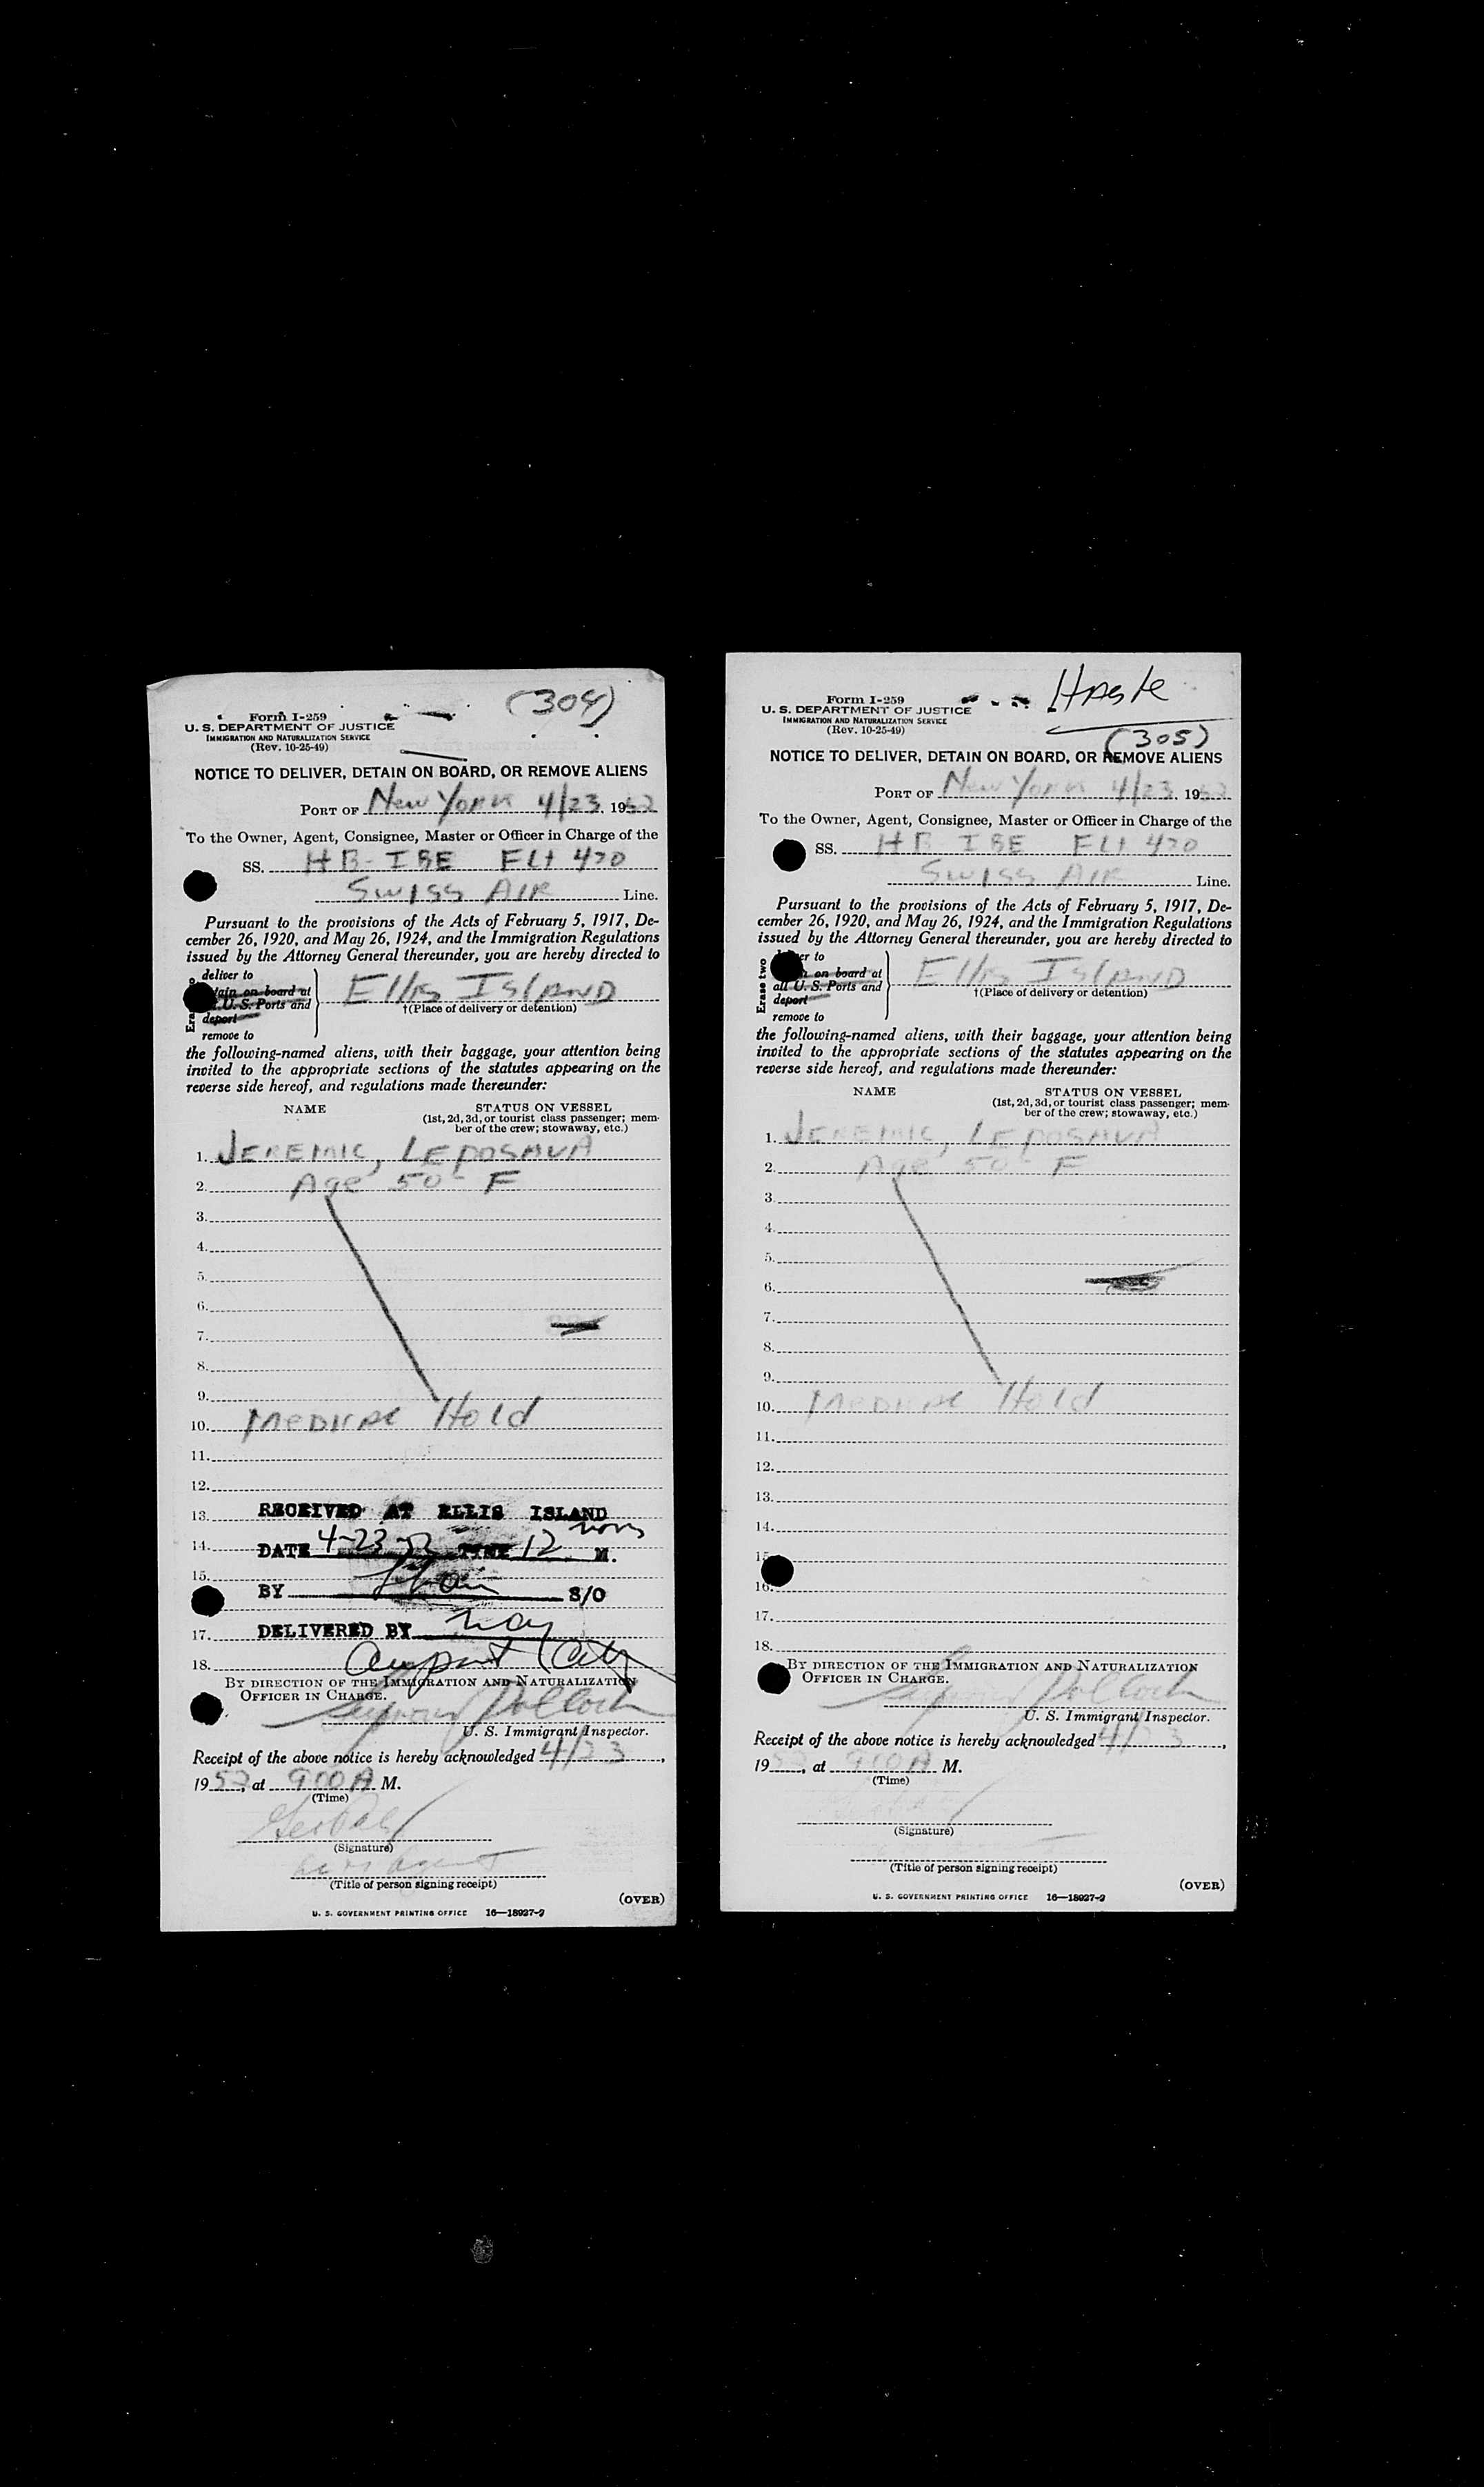 (304)
Form I-259
U. S. DEPARTMENT OF JUSTICE
IMMIGRATION AND NATURALIZATION SERVICE
(Rev. 10-25-49)
NOTICE TO DELIVER, DETAIN ON BOARD, OR REMOVE ALIENS
PORT OF New York 4/23, 1952
To the Owner, Agent, Consignee, Master or Officer in Charge of the
SS. HB-IBE FLt 470
SWISS AIR Line.
Pursuant to the provisions of the Acts of February 5, 1917, De-
cember 26, 1920, and May 26, 1924, and the Immigration Regulations
issued by the Attorney General thereunder, you are hereby directed to
deliver to
tain on board at
U. S. Ports and
deport
remove to
Ellis ISLAND
†(Place of delivery or detention)
the following-named aliens, with their baggage, your attention being
invited to the appropriate sections of the statutes appearing on the
reverse side hereof, and regulations made thereunder:
NAME STATUS ON VESSEL
(1st, 2d, 3d, or tourist class passenger; mem-
ber of the crew; stowaway, etc.)
1. JEREMIC, LEPOSAVA
2. Age 50- F
3.
4.
5.
6.
7.
8.
9.
10. MEDICAL Hold
11.
12.
13. RECEIVED AT ELLIS ISLAND
14. DATE 4-23-52 TIME 12 noon M.
15.
BY S/O
17. DELIVERED BY
18.
BY DIRECTION OF THE IMMIGRATION AND NATURALIZATION
OFFICER IN CHARGE.
Seymour Pollock
U. S. Immigrant Inspector.
Receipt of the above notice is hereby acknowledged 4/23,
1952, at 900 A M.
(Time)
(Signature)
(Title of person signing receipt)
(OVER)
U. S. GOVERNMENT PRINTING OFFICE 16—18927-2
Haste
(305)
Form I-259
U. S. DEPARTMENT OF JUSTICE
IMMIGRATION AND NATURALIZATION SERVICE
(Rev. 10-25-49)
NOTICE TO DELIVER, DETAIN ON BOARD, OR REMOVE ALIENS
PORT OF New York 4/23, 1952
To the Owner, Agent, Consignee, Master or Officer in Charge of the
SS. HB IBE FLt 470
SWISS AIR Line.
Pursuant to the provisions of the Acts of February 5, 1917, De-
cember 26, 1920, and May 26, 1924, and the Immigration Regulations
issued by the Attorney General thereunder, you are hereby directed to
Erase two
er to
on board at
all U. S. Ports and
deport
remove to
Ellis ISLAND
†(Place of delivery or detention)
the following-named aliens, with their baggage, your attention being
invited to the appropriate sections of the statutes appearing on the
reverse side hereof, and regulations made thereunder:
NAME STATUS ON VESSEL
(1st, 2d, 3d, or tourist class passenger; mem-
ber of the crew; stowaway, etc.)
1. JEREMIC, LEPOSAVA
2. Age 50- F
3.
4.
5.
6.
7.
8.
9.
10. MEDICAL Hold
11.
12.
13.
14.
15
16.
17.
18.
BY DIRECTION OF THE IMMIGRATION AND NATURALIZATION
OFFICER IN CHARGE.
Seymour Pollock
U. S. Immigrant Inspector.
Receipt of the above notice is hereby acknowledged 4/23,
1952, at 900 A M.
(Time)
(Signature)
(Title of person signing receipt)
(OVER)
U. S. GOVERNMENT PRINTING OFFICE 16—18927-2